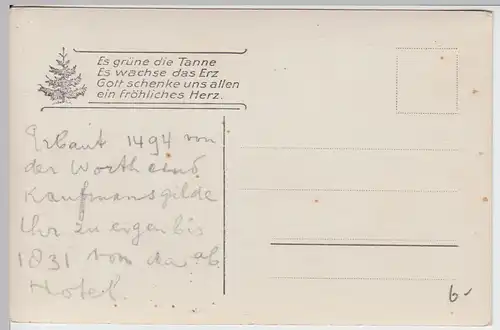 Es grüne die Tanne
Es wachse das Erz
Gott schenke uns allen
ein fröhliches Herz.
Erbaut 1494 von
der Worth und
Kaufmansgilde
Ihr zu eigen bis
1831 von da ab
Hotel.
6-